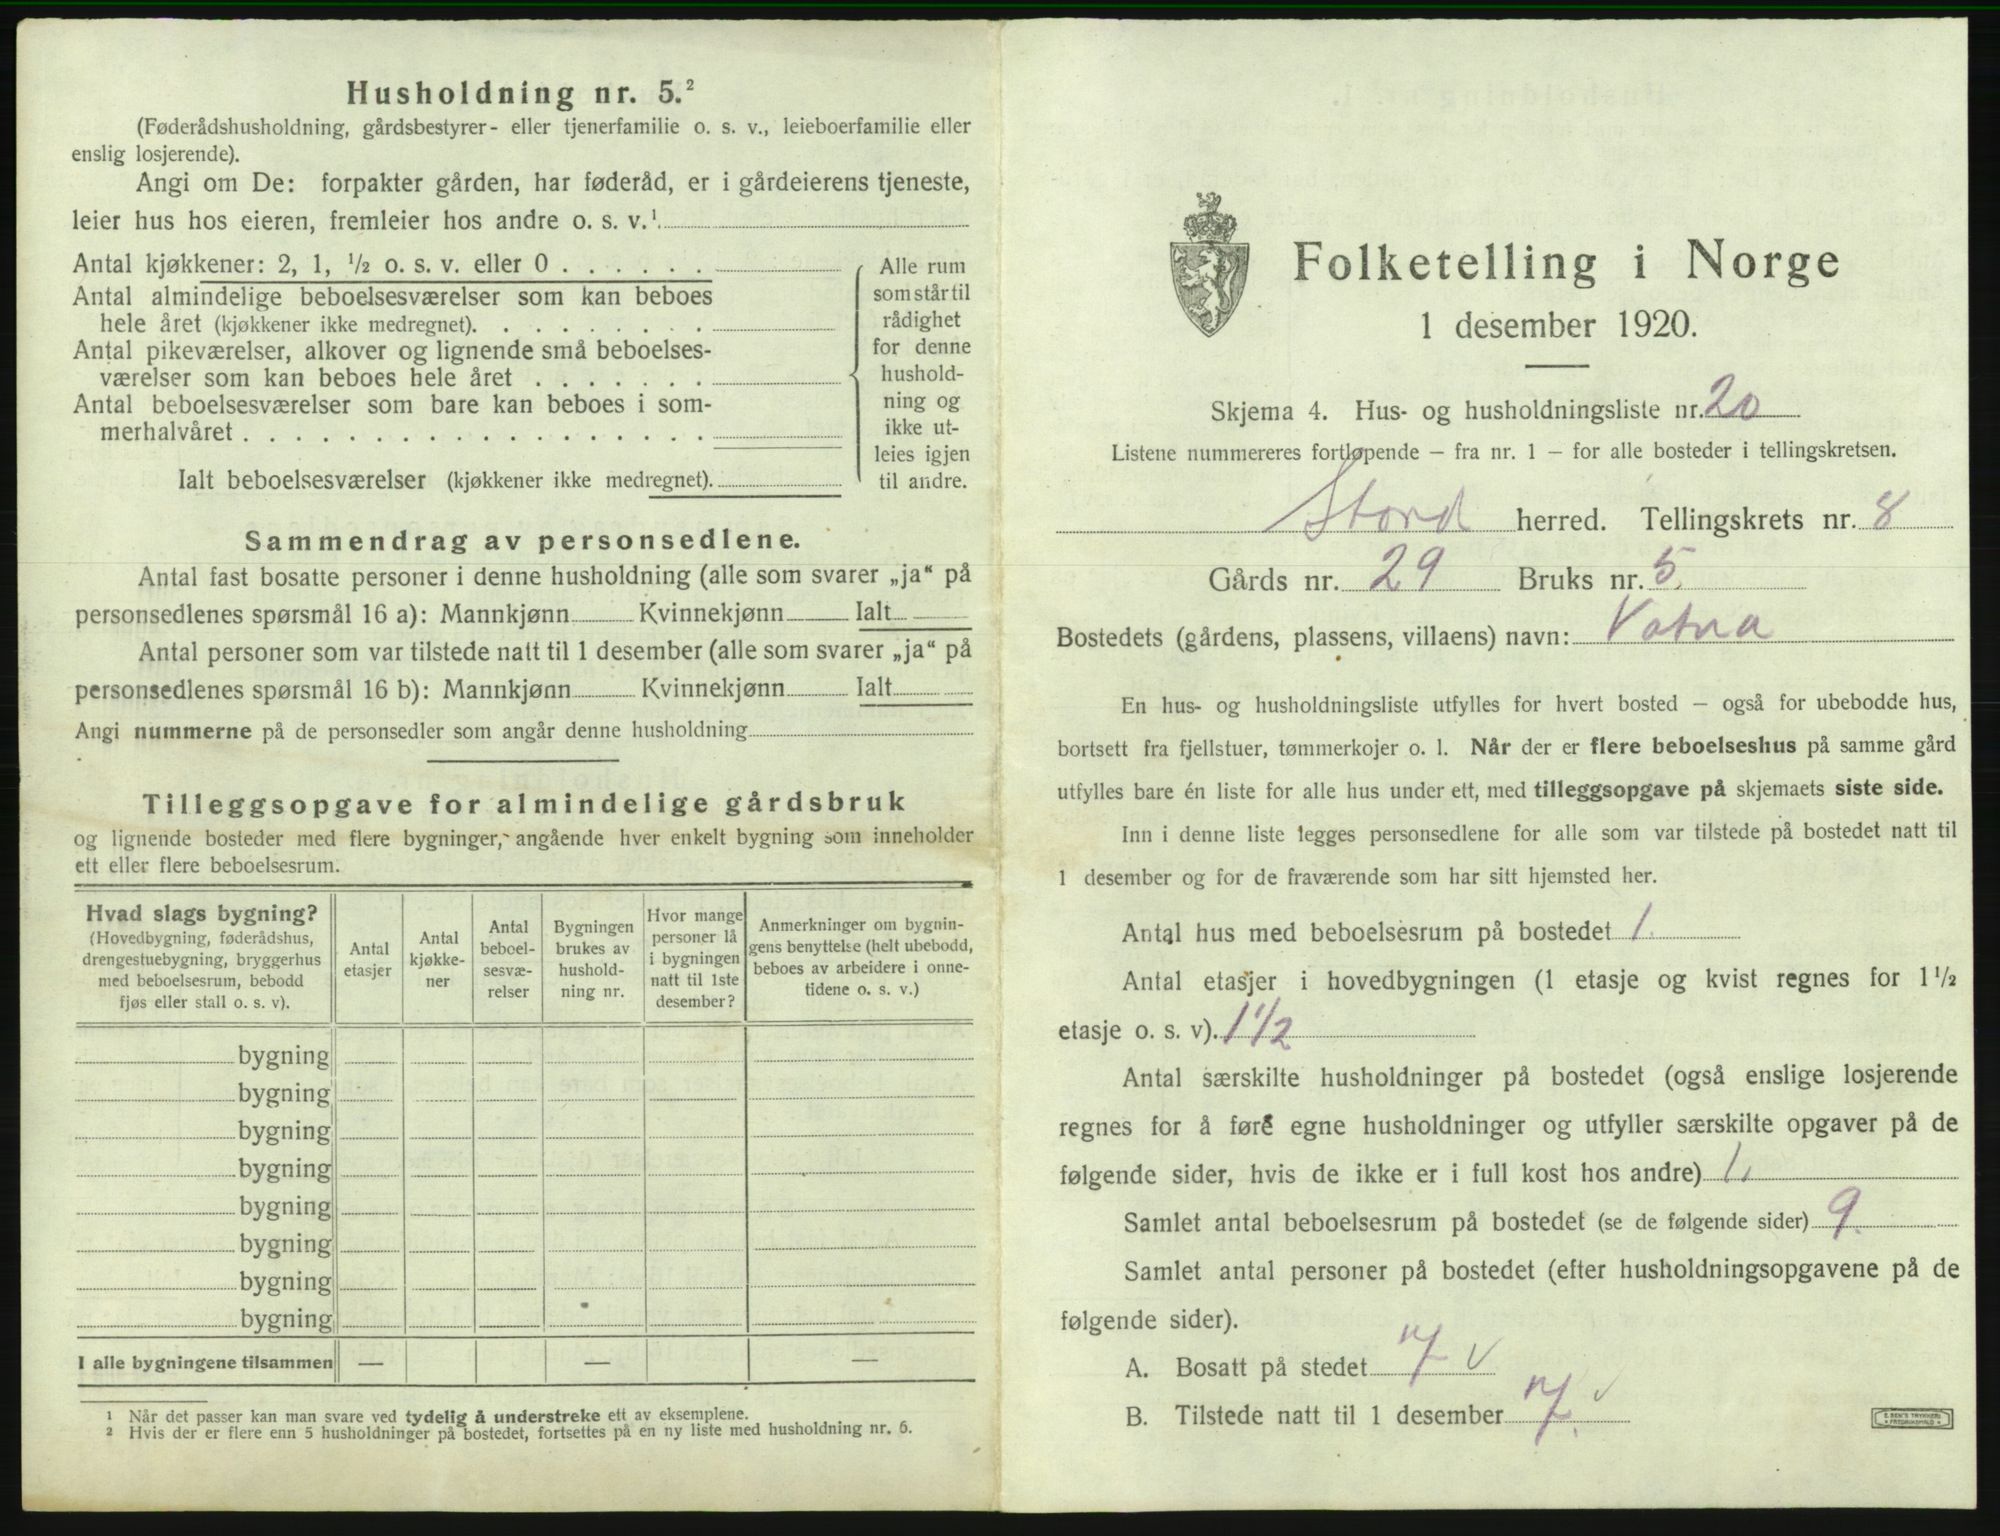 Husholdning nr. 5.²
(Føderådshusholdning, gårdsbestyrer- eller tjenerfamilie o. s. v., leieboerfamilie eller
enslig losjerende).
Angi om De: forpakter gården, har føderåd, er i gårdeierens tjeneste,
leier hus hos eieren, fremleier hos andre o. s. v.¹.
Antal kjøkkener: 2, 1, ½ o. s. v. eller 0 . . . . . .
Antal almindelige beboelsesværelser som kan beboes
hele året (kjøkkener ikke medregnet). . . . . . . . .
Antal pikeværelser, alkover og lignende små beboelses-
værelser som kan beboes hele året . . . . . . .
Antal beboelsesværelser som bare kan beboes i som-
merhalvåret . . . . . . . . . . . . . . . . . .
Ialt beboelsesværelser (kjøkkener ikke medregnet).
Alle rum
som står til
rådighet
for denne
hushold-
ning og
ikke ut-
leies igjen
til andre.
Sammendrag av personsedlene.
Antal fast bosatte personer i denne husholdning (alle som svarer „ja“ på
personsedlenes spørsmål 16 a): Mannkjønn Kvinnekjønn Ialt
Antal personer som var tilstede natt til 1 desember (alle som svarer „ja“ på
personsedlenes spørsmål 16 b): Mannkjønn Kvinnekjønn Ialt
Angi nummerne på de personsedler som angår denne husholdning
Tilleggsopgave for almindelige gårdsbruk
og lignende bosteder med flere bygninger, angående hver enkelt bygning som inneholder
ett eller flere beboelsesrum.
Hvad slags bygning?
(Hovedbygning, føderådshus,
drengestuebygning, bryggerhus
med beboelsesrum, bebodd
fjøs eller stall o. s. v).
Antal
etasjer
Antal
kjøkke-
ner
Antal
beboel-
sesvæ-
relser
Bygningen
brukes av
hushold-
ning nr.
Hvor mange
personer lå
i bygningen
natt til 1ste
desember?
Anmerkninger om bygnin-
gens benyttelse (helt ubebodd,
beboes av arbeidere i onne-
tidene o. s. v.)
bygning
bygning
bygning
bygning
bygning
bygning
bygning
bygning
I alle bygningene tilsammen — — —
¹ Når det passer kan man svare ved tydelig å understreke ett av eksemplene.
² Hvis der er flere enn 5 husholdninger på bostedet, fortsettes på en ny liste med husholdning nr. 6.
Folketelling i Norge
1 desember 1920.
Skjema 4. Hus- og husholdningsliste nr. 20
Listene nummereres fortløpende – fra nr. 1 – for alle bosteder i tellingskretsen.
Stord herred. Tellingskrets nr. 8
Gårds nr. 29 Bruks nr. 5.
Bostedets (gårdens, plassens, villaens) navn: Vatna
En hus- og husholdningsliste utfylles for hvert bosted – også for ubebodde hus,
bortsett fra fjellstuer, tømmerkojer o. l. Når der er flere beboelseshus på samme gård
utfylles bare én liste for alle hus under ett, med tilleggsopgave på skjemaets siste side.
Inn i denne liste legges personsedlene for alle som var tilstede på bostedet natt til
1 desember og for de fraværende som har sitt hjemsted her.
Antal hus med beboelsesrum på bostedet 1.
Antal etasjer i hovedbygningen (1 etasje og kvist regnes for 1½
etasje o. s. v). 1½
Antal særskilte husholdninger på bostedet (også enslige losjerende
regnes for å føre egne husholdninger og utfyller særskilte opgaver på de
følgende sider, hvis de ikke er i full kost hos andre) 1.
Samlet antal beboelsesrum på bostedet (se de følgende sider) 9.
Samlet antal personer på bostedet (efter husholdningsopgavene på de
følgende sider).
A. Bosatt på stedet 7 v
B. Tilstede natt til 1 desember 7. v
E. SEM'S TRYKKERI
* FREDRIKSHALD *